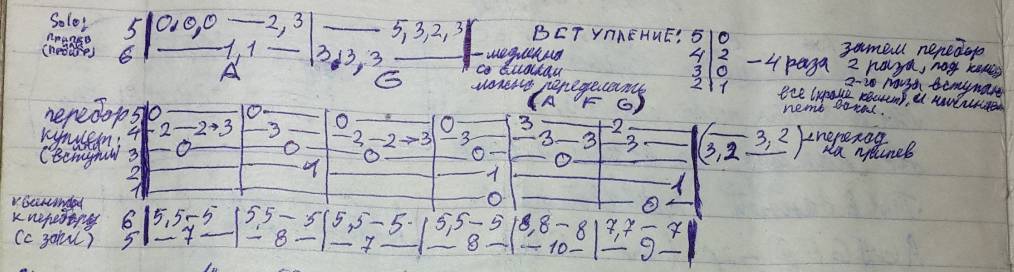 Solo:
припев
или
(проигр)
5 | 0,0,0 — 2,3 | — 5,3,2,3 |
6 | — 1,1 — | 3,3,3 — |
A G
- медленно
со смаком
можно переделать
(A F G)
ВСТУПЛЕНИЕ:
5 | 0
4 | 2
3 | 0
2 | 1
- 4 раза
затем перебор
2 раза, под конец
2-го раза вступают
все (кроме квинт) и начинаем
петь вокал.
перебор
куплет
или
(вступл)
5 | 0 — | 0 — | 0 — | 0 — | 3 — | 2 — |
4 | -2—2→3 | — 3 — | -2—2→3 | — 3 — | -3—3 | — 3 — |
3 | — 0 — | — 0 | — 0 — | — 0 - | — 0 — | — |
2 | — | — 1 | — | — 1 | — | — 1 |
1 | — | — | — | — 0 | — | — 0 — |
( — 3,2 )
( 3,2 — )
- переход
на припев
квинты
к перебору
(с зажл)
6 | 5,5-5 | 5,5-5 | 5,5-5 | 5,5-5 | 8,8-8 | 7,7-7 |
5 | -7— | -8— | -7— | -8— | -10- | -9- |